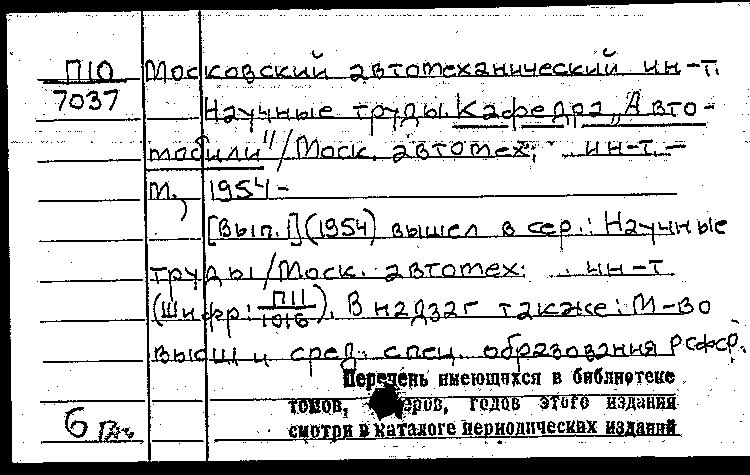 П10 Московский автотеханический ин-т.
7037
Научные труды. Кафедра „Авто-
мобили"/Моск. автотех. ин-т. -
М., 1954 -
[Вып.](1954) вышел в сер.: Научные
труды/Моск. автотех. ин-т
(Шифр: П11/1016). В надзаг также: М-во
высш и сред. спец. образования РСФСР.
Перечень имеющихся в библиотеке
томов, номеров, годов этого издания
смотри в каталоге периодических изданий
6